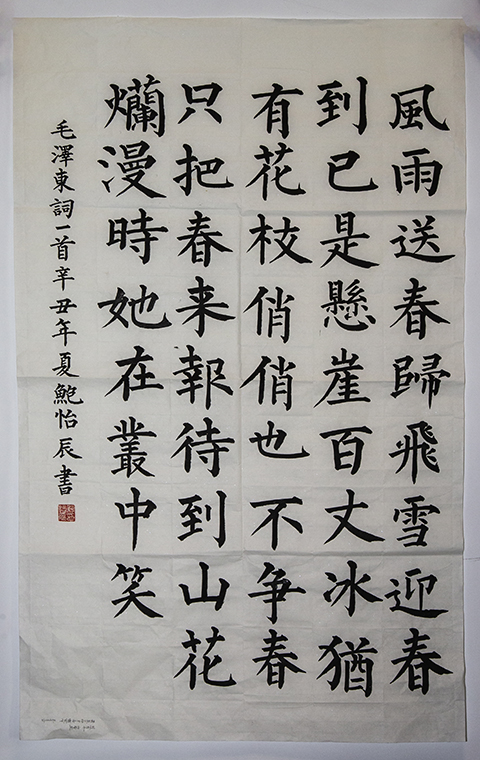 風雨送春歸飛雪迎春
到已是懸崖百丈冰猶
有花枝俏俏也不争春
只把春来報待到山花
爛漫時她在叢中笑
毛澤東詞一首辛丑年夏鮑怡辰書